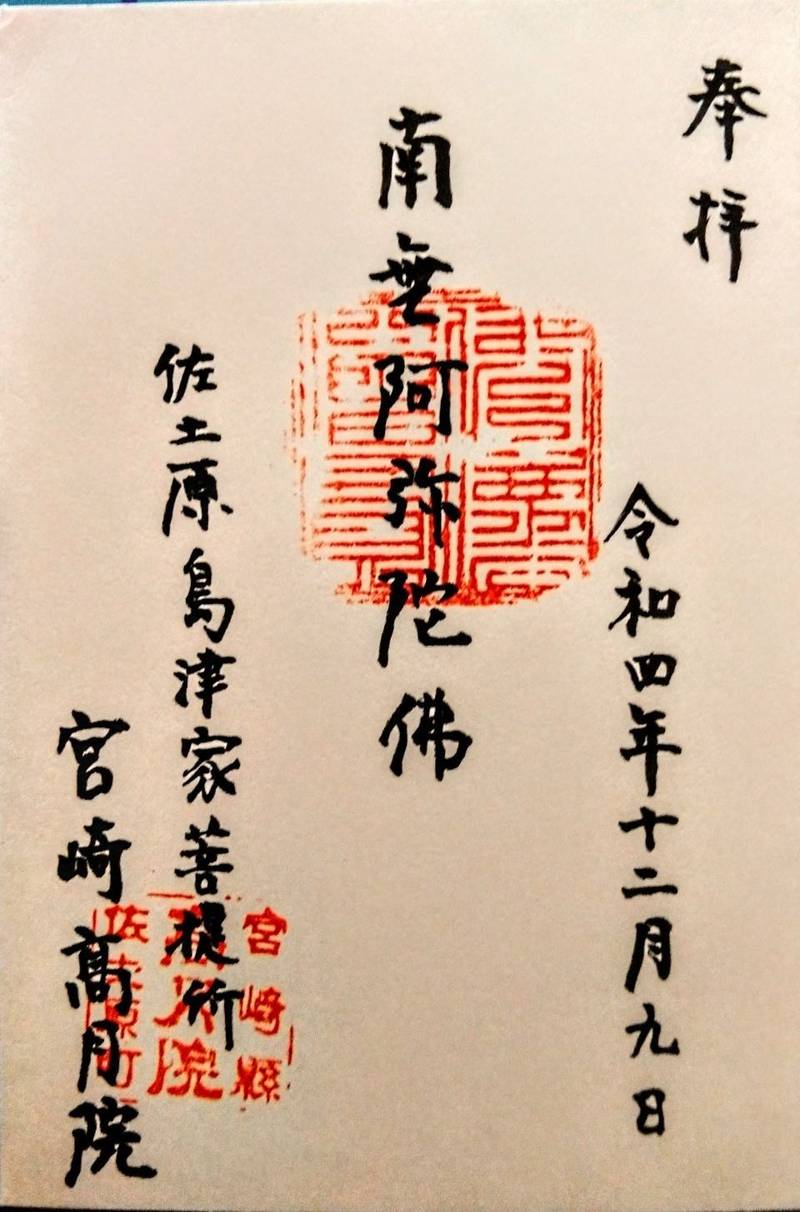 奉拝
令和四年十二月九日
南無阿弥陀佛
佐土原島津家菩提所
宮崎高月院
宮崎縣
高月院
佐土原町